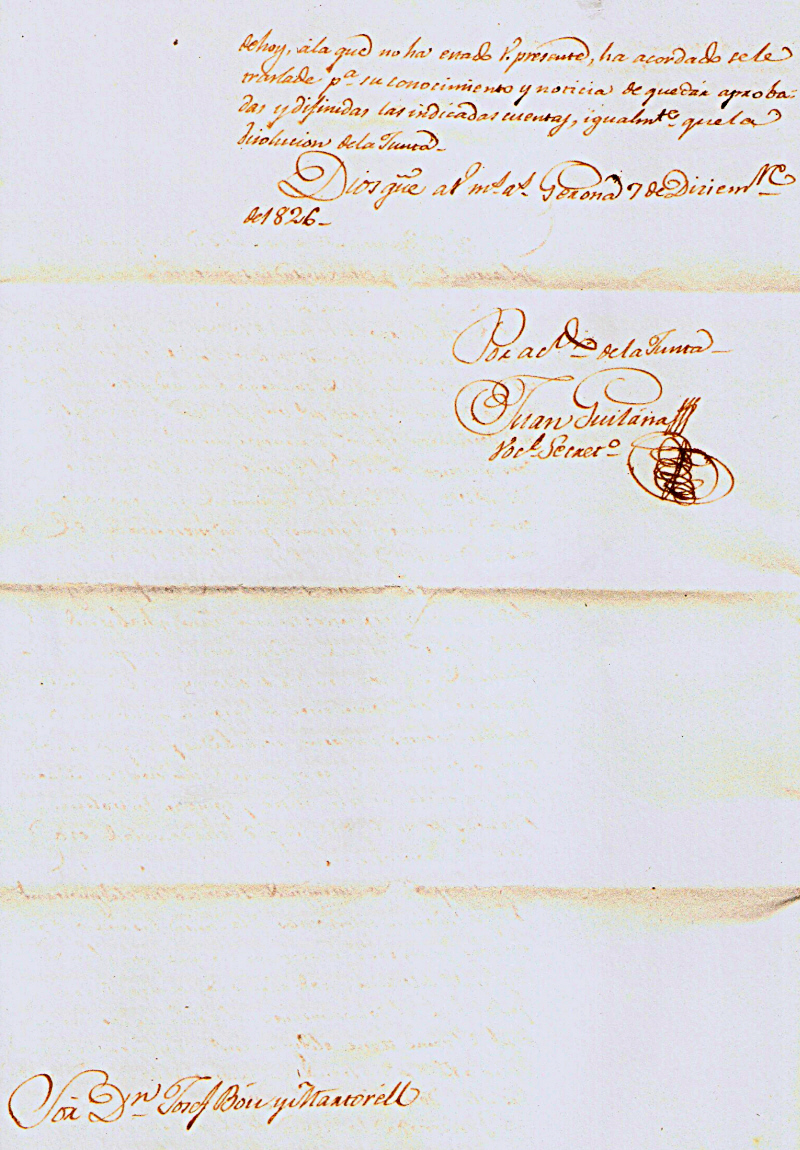 de hoy, á la que no ha estado V. presente, ha acordado se le
traslade pª su conocimiento y noticia de quedár aproba-
das y difinidas las indicadas cuentas, igualmte. que la
disolucion de la Junta.
Dios gũe a V. ms. as. Gerona 7 de Diciembre
de 1826.
Por acdo. de la Junta
Juan Guitária
Vocl. Secreto.
Sor. Dn. Josef Bóu y Martoréll